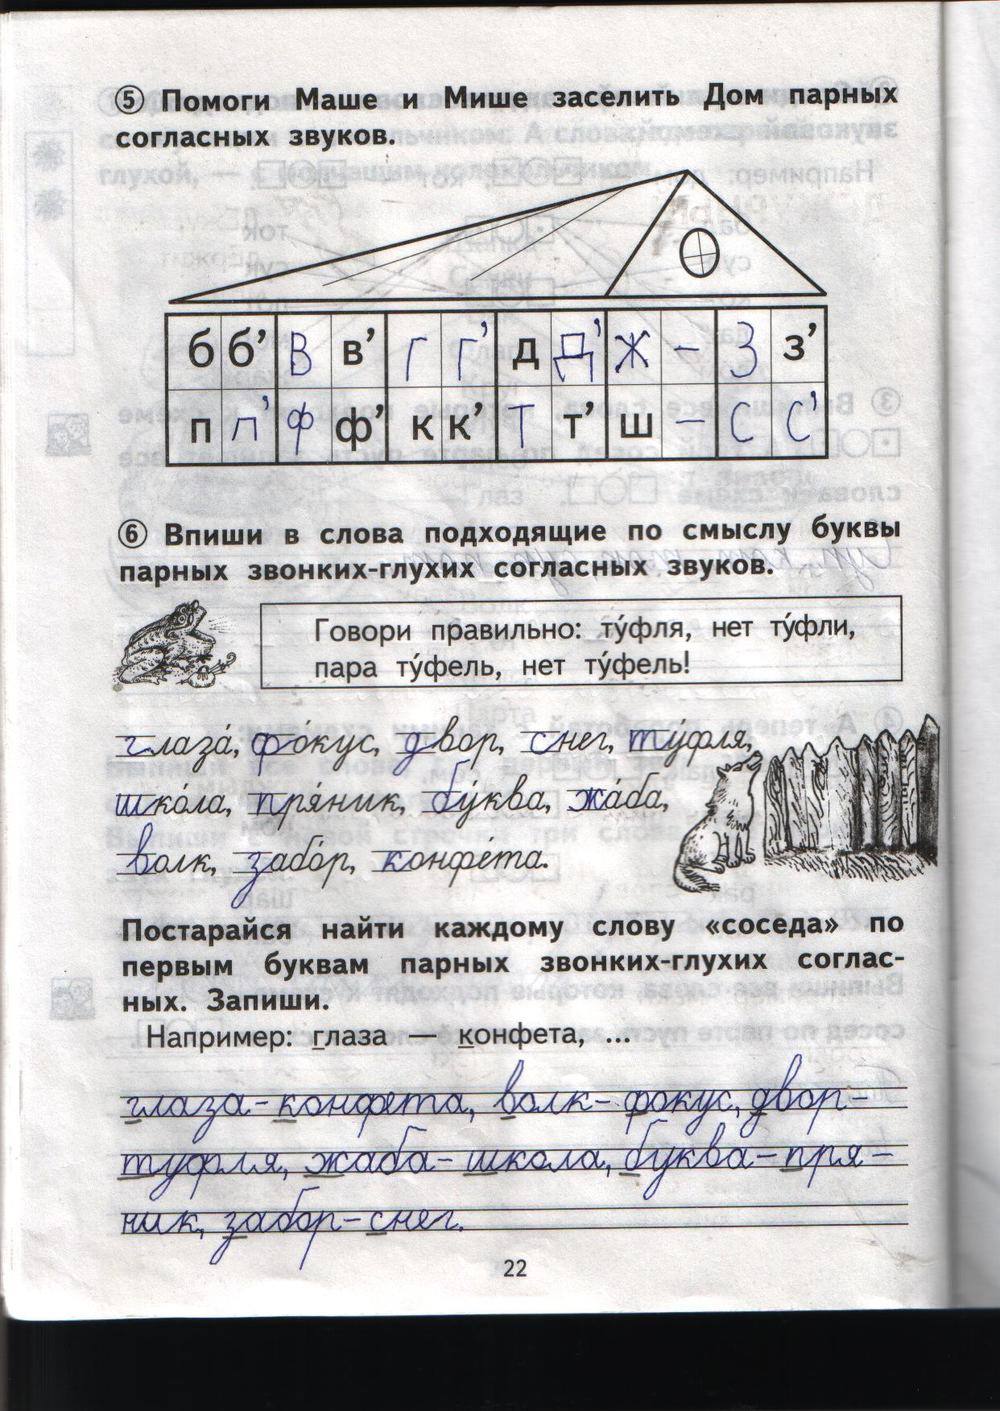 ⑤ Помоги Маше и Мише заселить Дом парных
согласных звуков.
б б’ в в’ г г’ д д’ ж – з з’
п п’ ф ф’ к к’ т т’ ш – с с’
⑥ Впиши в слова подходящие по смыслу буквы
парных звонких-глухих согласных звуков.
Говори правильно: ту́фля, нет ту́фли,
пара ту́фель, нет ту́фель!
глаза́, фо́кус, двор, снег, ту́фля,
шко́ла, пря́ник, бу́ква, жа́ба,
волк, забо́р, конфе́та.
Постарайся найти каждому слову «соседа» по
первым буквам парных звонких-глухих соглас-
ных. Запиши.
Например: глаза — конфета, ...
глаза - конфета, волк - фокус, двор -
туфля, жаба - школа, буква - пря -
ник, забор - снег.
22